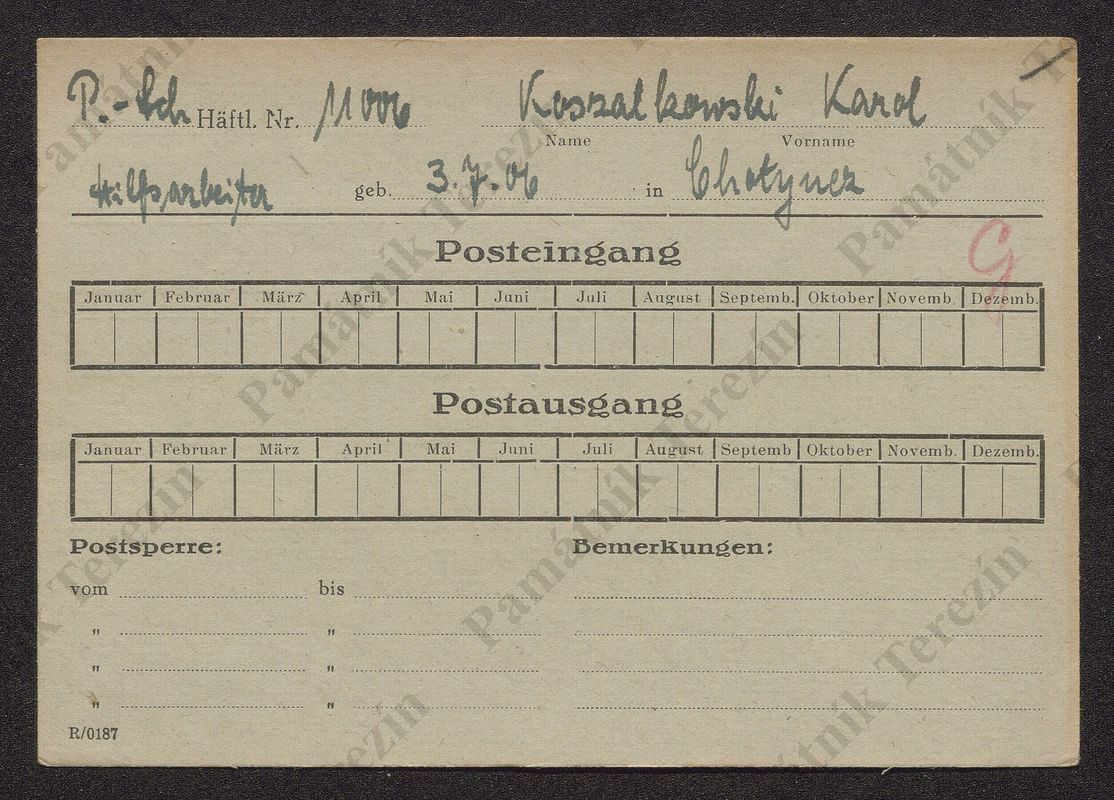 P.-Sch Häftl. Nr. 11006 Koszalkowski Karol
Name Vorname
Hilfsarbeiter geb. 3.7.06 in Chotynez
Posteingang
Januar Februar März April Mai Juni Juli August Septemb. Oktober Novemb. Dezemb.
Postausgang
Januar Februar März April Mai Juni Juli August Septemb Oktober Novemb. Dezemb.
Postsperre: Bemerkungen:
vom bis
" "
" "
" "
R/0187
Památník Terezín